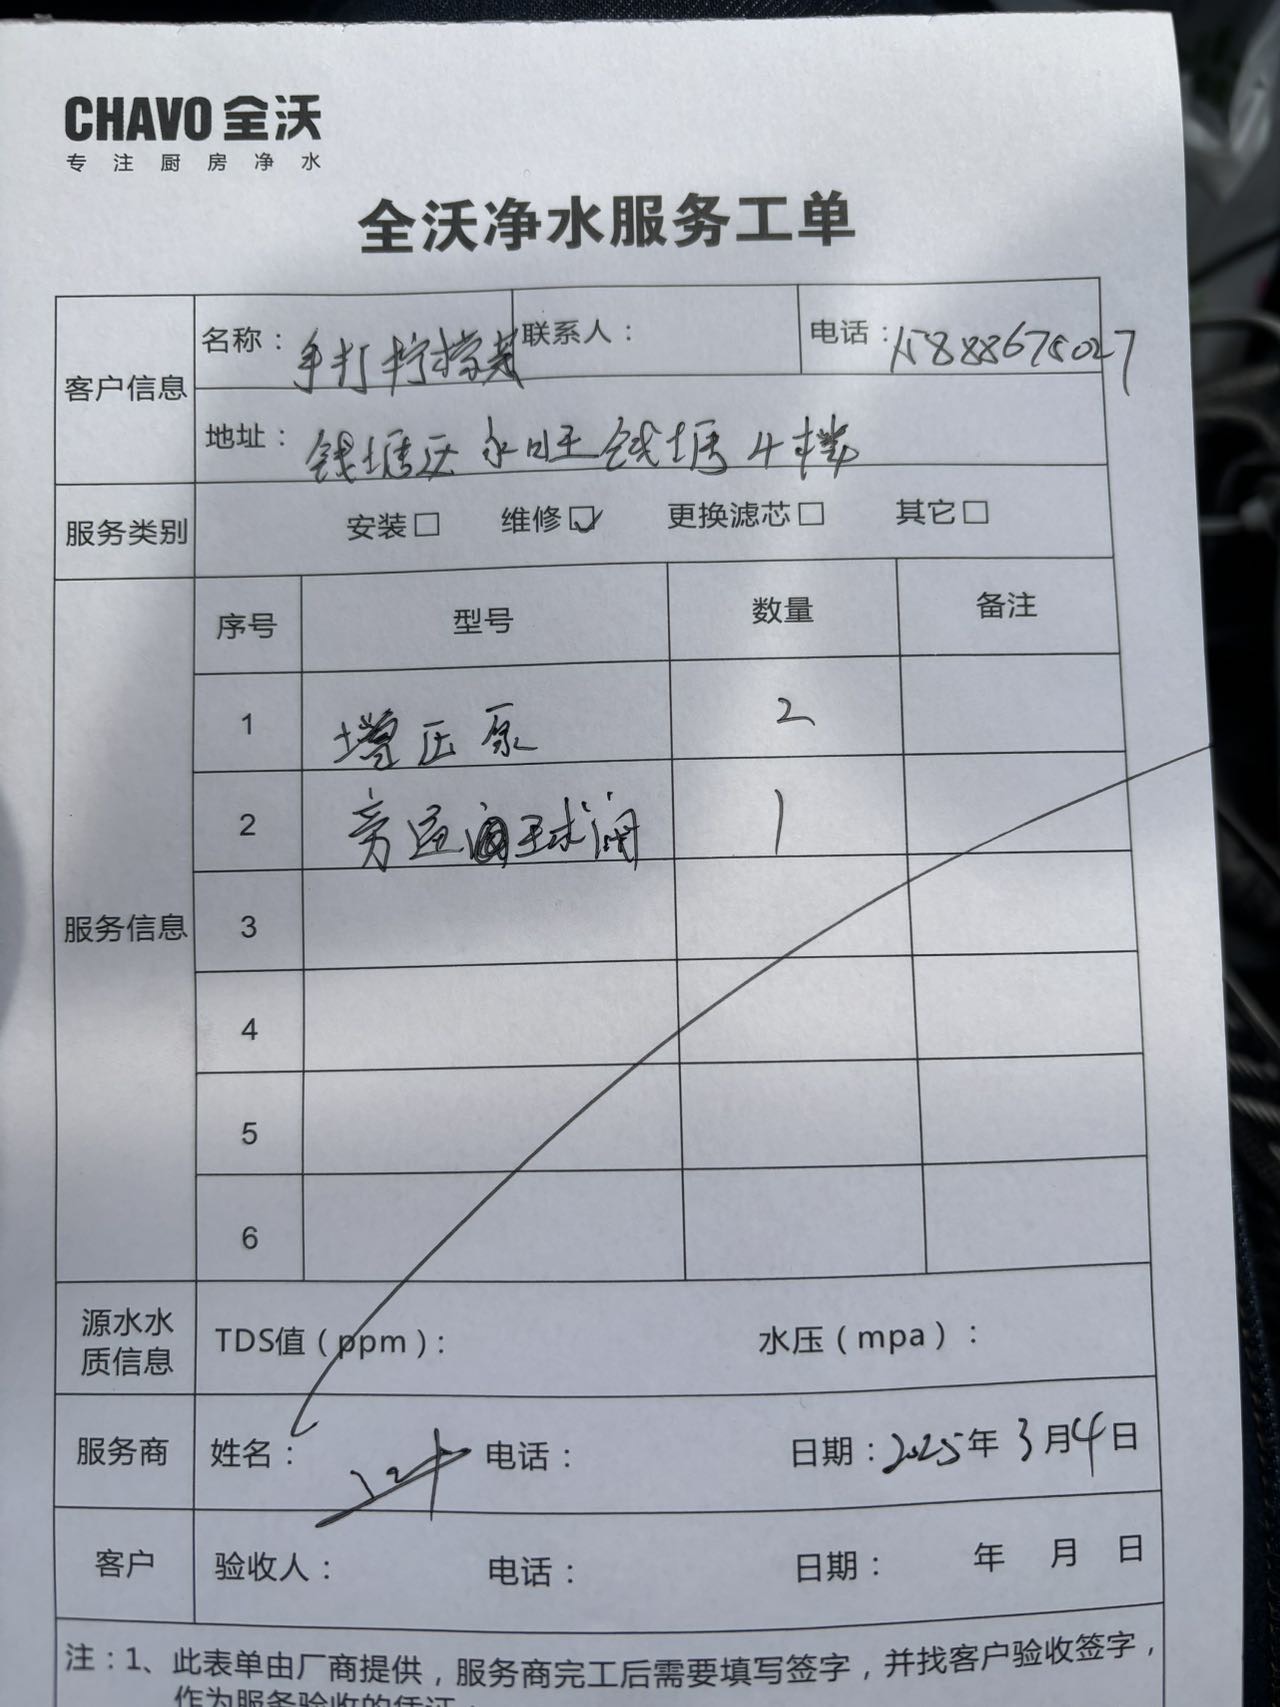 CHAVO 全沃
专注厨房净水
全沃净水服务工单
客户信息
名称：手打柠檬茶 联系人： 电话：15888675027
地址：钱塘区永旺钱塘4楼
服务类别 安装□ 维修☑ 更换滤芯□ 其它□
服务信息
序号 型号 数量 备注
1 增压泵 2
2 旁通球阀 1
3
4
5
6
源水水质信息 TDS值（ppm）： 水压（mpa）：
服务商 姓名： 电话： 日期：2025年3月4日
客户 验收人： 电话： 日期： 年 月 日
注：1、此表单由厂商提供，服务商完工后需要填写签字，并找客户验收签字，
作为服务验收的凭证；